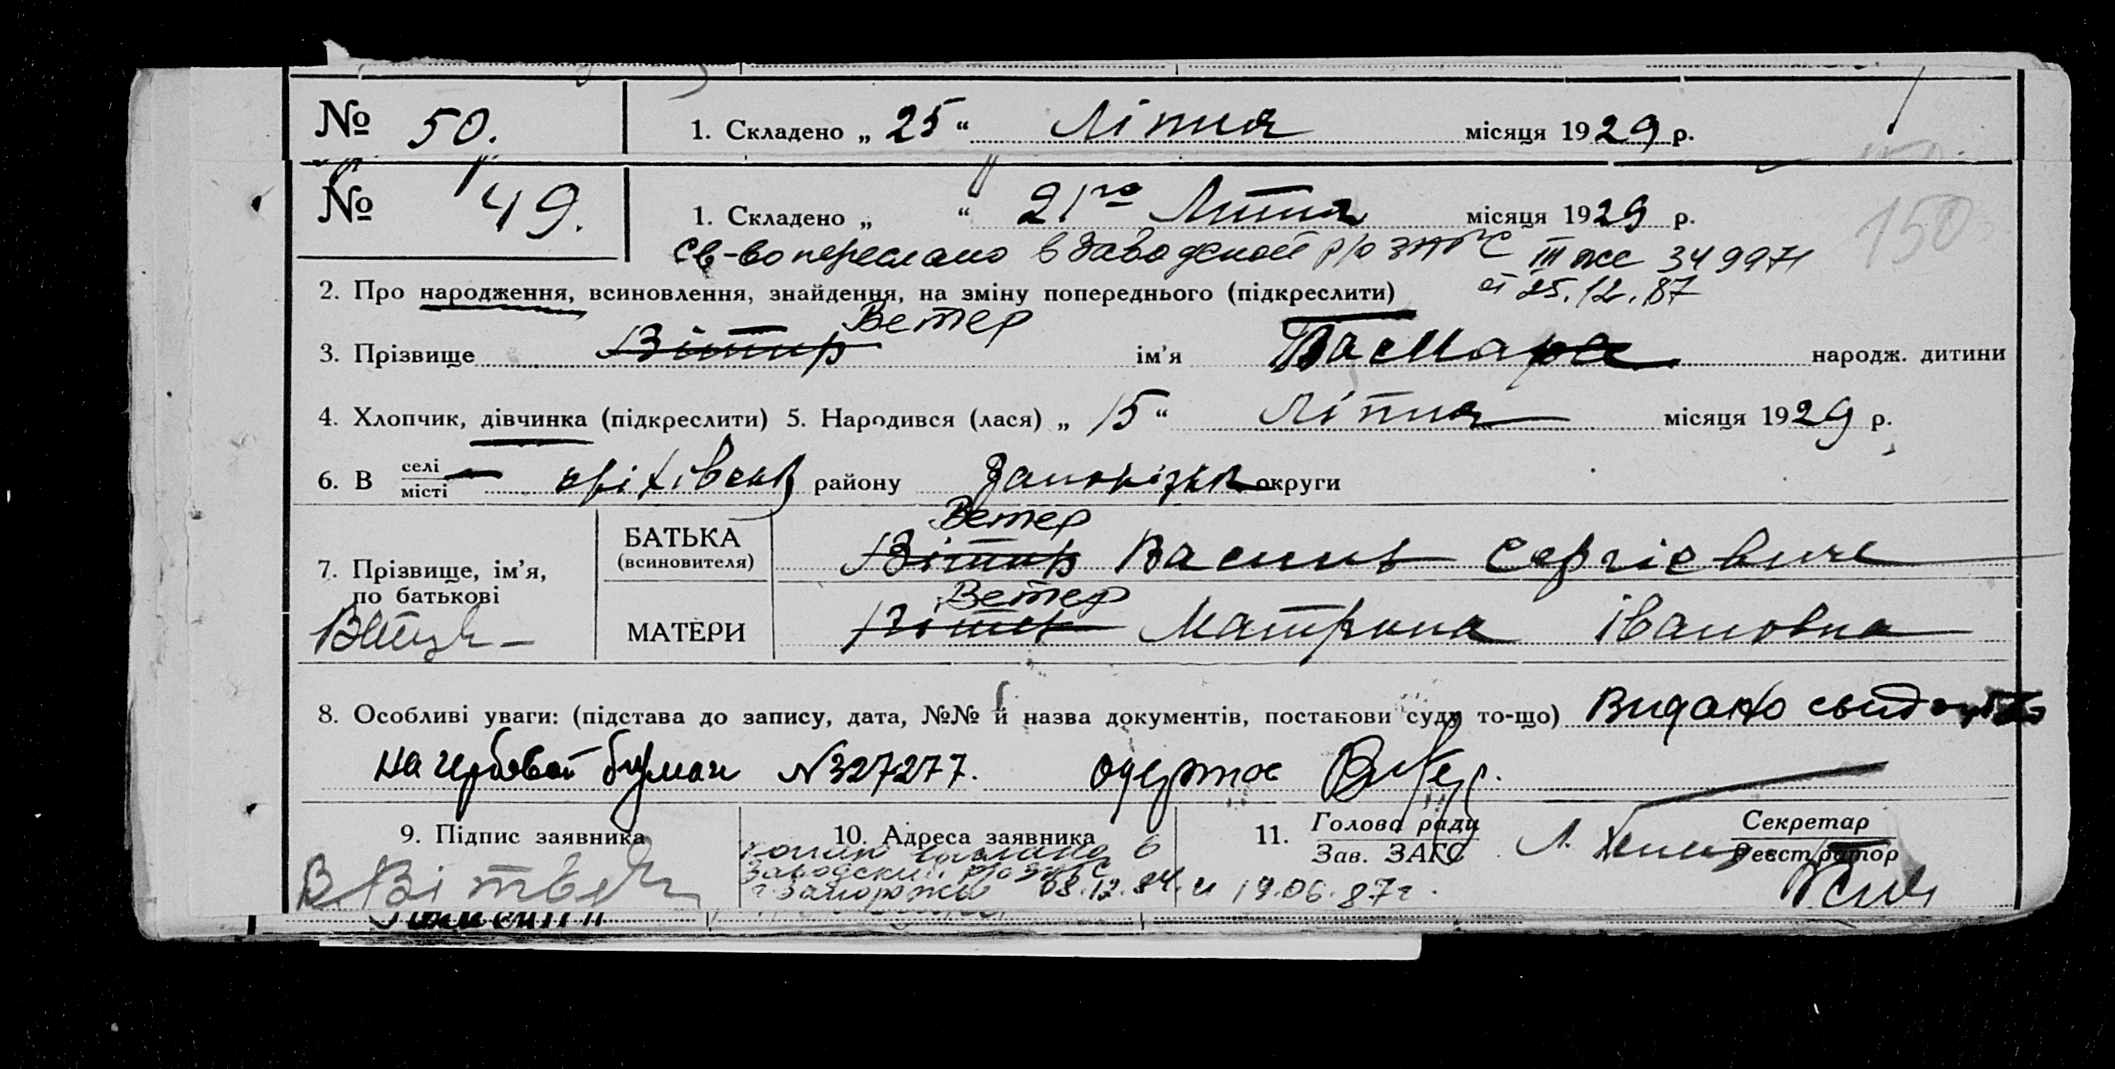 № 50. 1. Складено „ 25 “ Ліпня місяця 1929 р.
№ 49. 1. Складено „ “ 21го Липня місяця 1929 р.
150
св-во переслано в Заводской р/о ЗАГС III ЖС 349971
от 25.12.87
2. Про народження, всиновлення, знайдення, на зміну попереднього (підкреслити)
Ветер
3. Прізвище Вітир ім’я народж. дитини
4. Хлопчик, дівчинка (підкреслити) 5. Народився (лася) „ 15 “ Ліпня місяця 1929 р.
6. В селі місті оріхівськ району Запорізьк округи
Ветер
7. Прізвище, ім’я, по батькові БАТЬКА (всиновителя) Вітир Василь Сергієвич
Ветер
МАТЕРИ Матрина Івановна
8. Особливі уваги: (підстава до запису, дата, №№ й назва документів, постанови суду то-що) Видано
на гербовой бумаги №327277. одержав
9. Підпис заявника 10. Адреса заявника 11. Голова ради Секретар
Зав. ЗАГС Реєстратор
копию выслано в
Заводский р/о ЗАГС
г. Запорожья 08.12.84 и 19.06.87г.